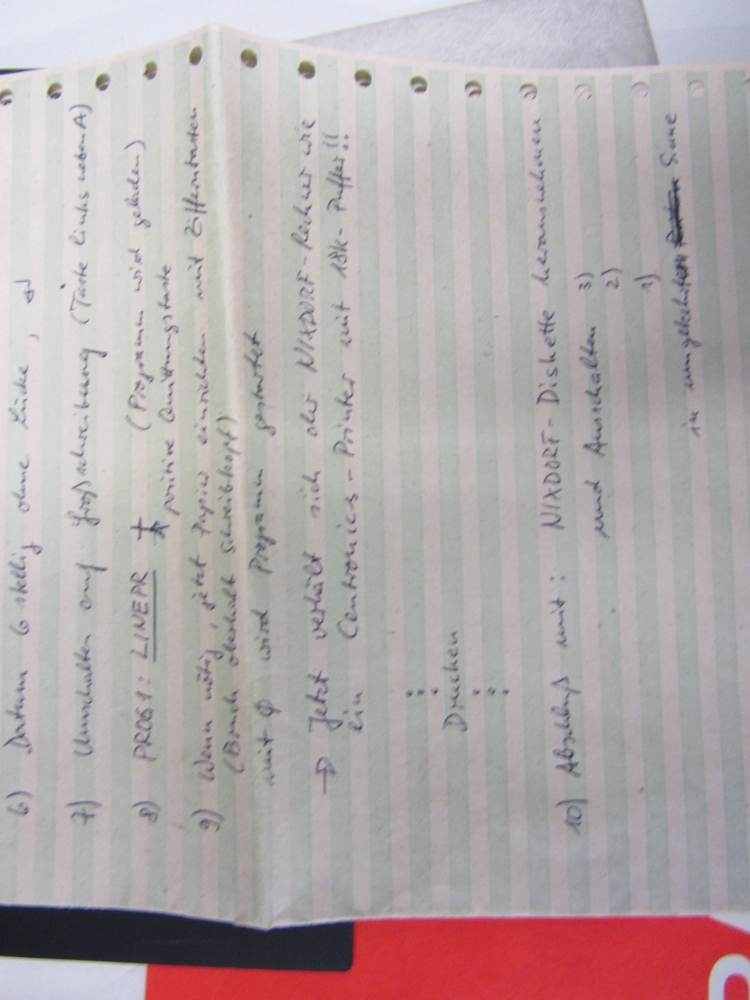 6) Datum 6 stellig ohne Lücke, ↵
7) Umschalten auf Großschreibung (Taste links neben A)
8) PROG1: LINEPR + (Programm wird geladen)
positive Quittungstaste
9) Wenn nötig, jetzt Papier einrichten mit Zifferntasten
(Bruch oberhalb Schreibkopf)
mit φ wird Programm gestartet
→ Jetzt verhält sich der NIXDORF-Rechner wie
ein Centronics-Printer mit 18k-Puffer!!
:
Drucken
:
10) Abschluß mit: NIXDORF-Diskette herausnehmen
und Ausschalten 3)
2)
1)
in umgekehrtem Sinne